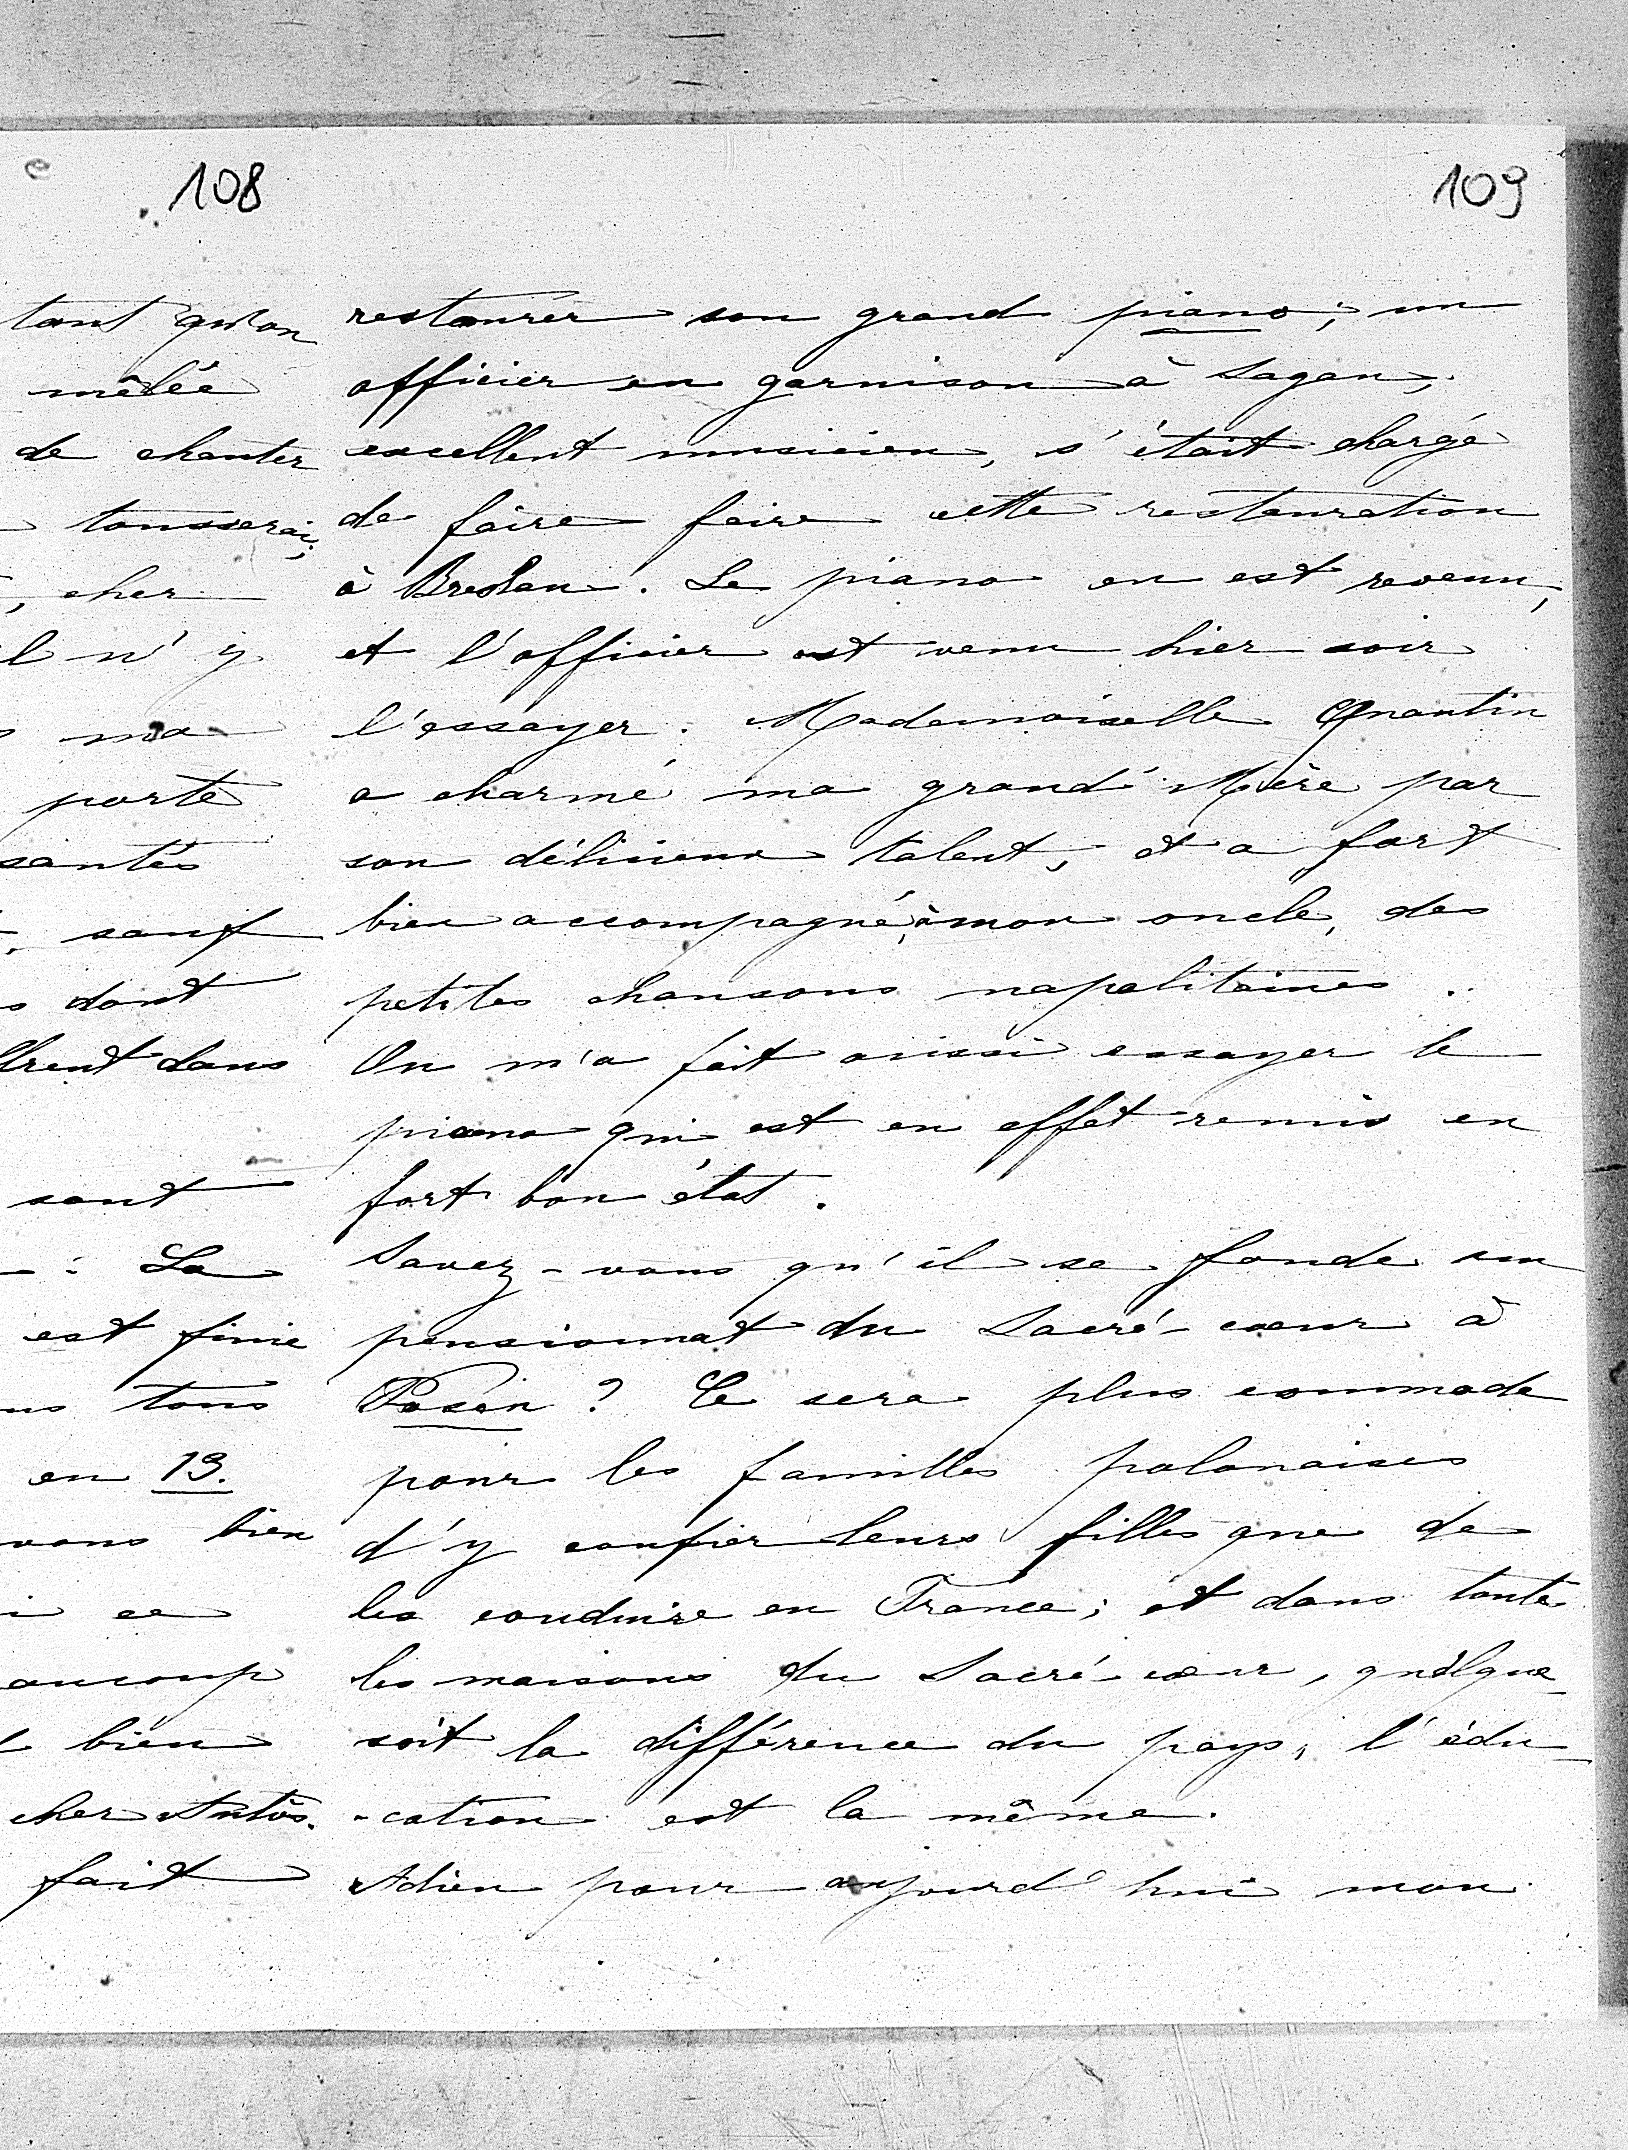 108
tant qu'on
mêlée
de chanter
tousserai;
, cher
l n'y
ma
porte
santés
, sauf
s dont
trent dans
sont
: La
est finie
us tous
en 13.
vous bien
i ce
aucoup
bien
cher Antôs.
fait
109
restaurer son grand piano; un
officier en garnison à Sagan,
excellent musicien, s'était chargé
de faire faire cette restauration
à Breslau. Le piano en est revenu,
et l'officier est venu hier soir
l'essayer. Mademoiselle Quantin
a charmé ma grand'Mère par
son délicieux talent, et a fort
bien accompagné, à mon oncle, des
petites chansons napolitaines.
On m'a fait aussi essayer le
piano qui est en effet remis en
fort bon état.
Savez-vous qu'il se fonde un
pensionnat du Sacré-cœur à
Posen? Ce sera plus commode
pour les familles polonaises
d'y confier leurs filles que de
les conduire en France; et dans toute
les maisons du Sacré-cœur, quelque
soit la différence du pays, l'édu-
-cation est la même.
Adieu pour aujourd'hui mon